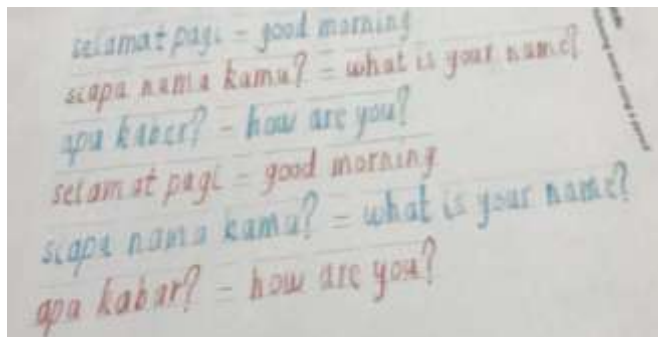 selamat pagi = good morning
siapa nama kamu? = what is your name?
apa kaber? = how are you?
selamat pagi = good morning
siapa nama kamu? = what is your name?
apa kabar? = how are you?